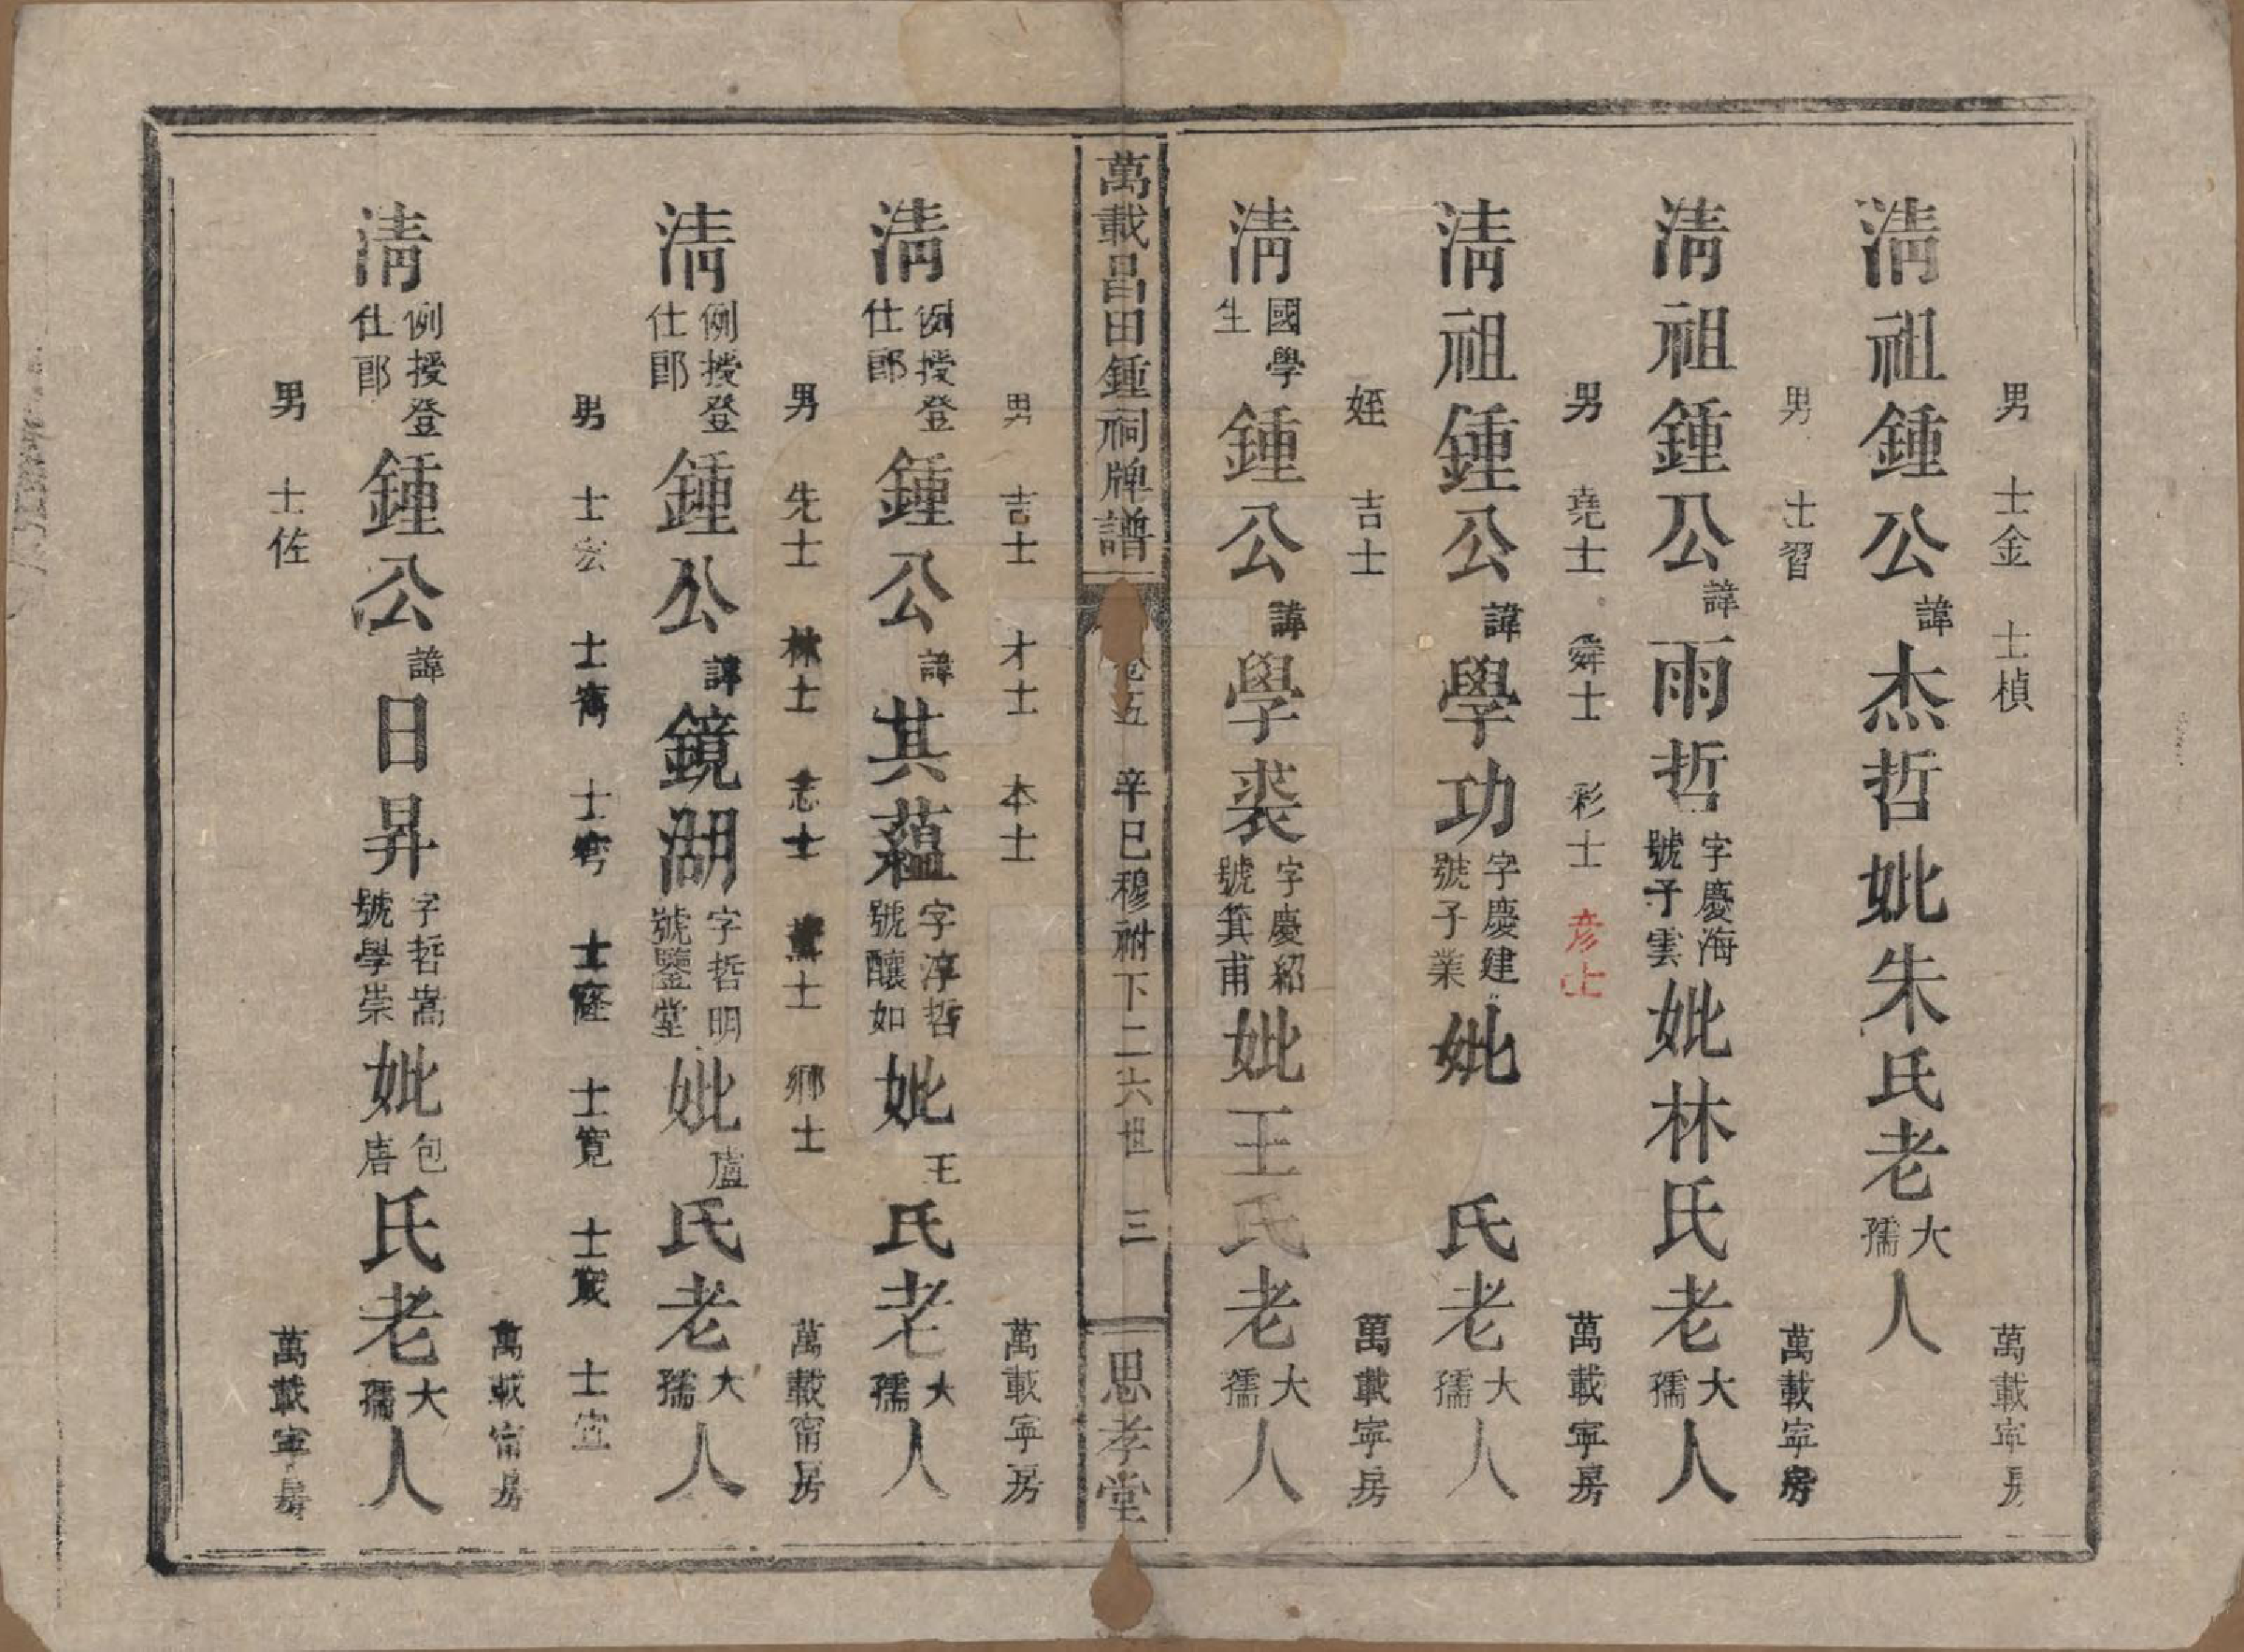 男 士金 士楨 萬載寜房
清祖鍾公諱杰哲妣朱氏老大孺人
男 士習 萬載寜房
清祖鍾公諱雨哲字慶海號子雲妣林氏老大孺人
男 堯士 舜士 彩士 彦士 萬載寜房
清祖鍾公諱學功字慶建號子業妣 氏老大孺人
姪 吉士 萬載寜房
清國學生鍾公諱學裘字慶紹號箕甫妣王氏老大孺人
萬載昌田鍾祠牌譜 卷五 辛巳穆祔下二六世 三 思孝堂
男 吉士 才士 本士 萬載寜房
清例授登仕郎鍾公諱其蘊字淳哲號釀如妣王氏老大孺人
男 先士 林士 志士 士 鄉士 萬載甯房
清例授登仕郎鍾公諱鏡湖字哲明號鑒堂妣盧氏老大孺人
男 士宏 士寯 士 士窿 士寬 士宬 士宜 萬載甯房
清例授登仕郎鍾公諱日昇字哲嵩號學崇妣包唐氏老大孺人
男 士佐 萬載寜房